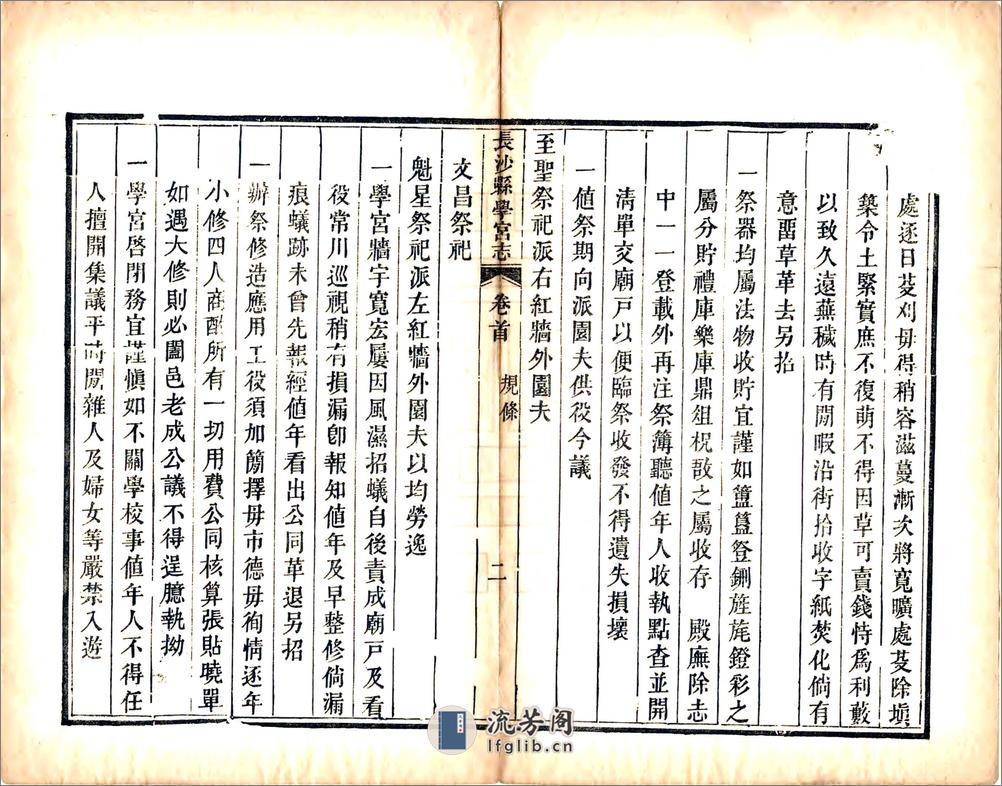 處逐日芟刈毋得稍容滋蔓漸次將寬曠處芟除塡
築令土緊實庶不復萌不得因草可賣錢恃爲利藪
以致久遠蕪穢時有閒暇沿街拾收字紙焚化倘有
意畱草革去另招
一祭器均屬法物收貯宜謹如簠簋豋鉶旌旄鐙彩之
屬分貯禮庫樂庫鼎俎柷敔之屬收存　殿廡除志
中一一登載外再注祭簿聽値年人收執點查並開
淸單交廟戸以便臨祭收發不得遺失損壞
一値祭期向派園夫供役今議
至聖祭祀派右紅牆外園夫
長沙縣學宮志　卷首　規條　二
文昌祭祀
魁星祭祀派左紅牆外園夫以均勞逸
一學宮牆宇寬宏屢因風濕招蟻自後責成廟戸及看
役常川巡視稍有損漏卽報知値年及早整修倘漏
痕蟻跡未曾先報經値年看出公同革退另招
一辦祭修造應用工役須加簡擇毋市德毋徇情逐年
小修四人商酌所有一切用費公同核算張貼曉單
如遇大修則必闔邑老成公議不得逞臆執拗
一學宮啓閉務宜謹愼如不關學校事値年人不得任
人擅開集議平時閒雜人及婦女等嚴禁入遊
流芳阁
lfglib.cn